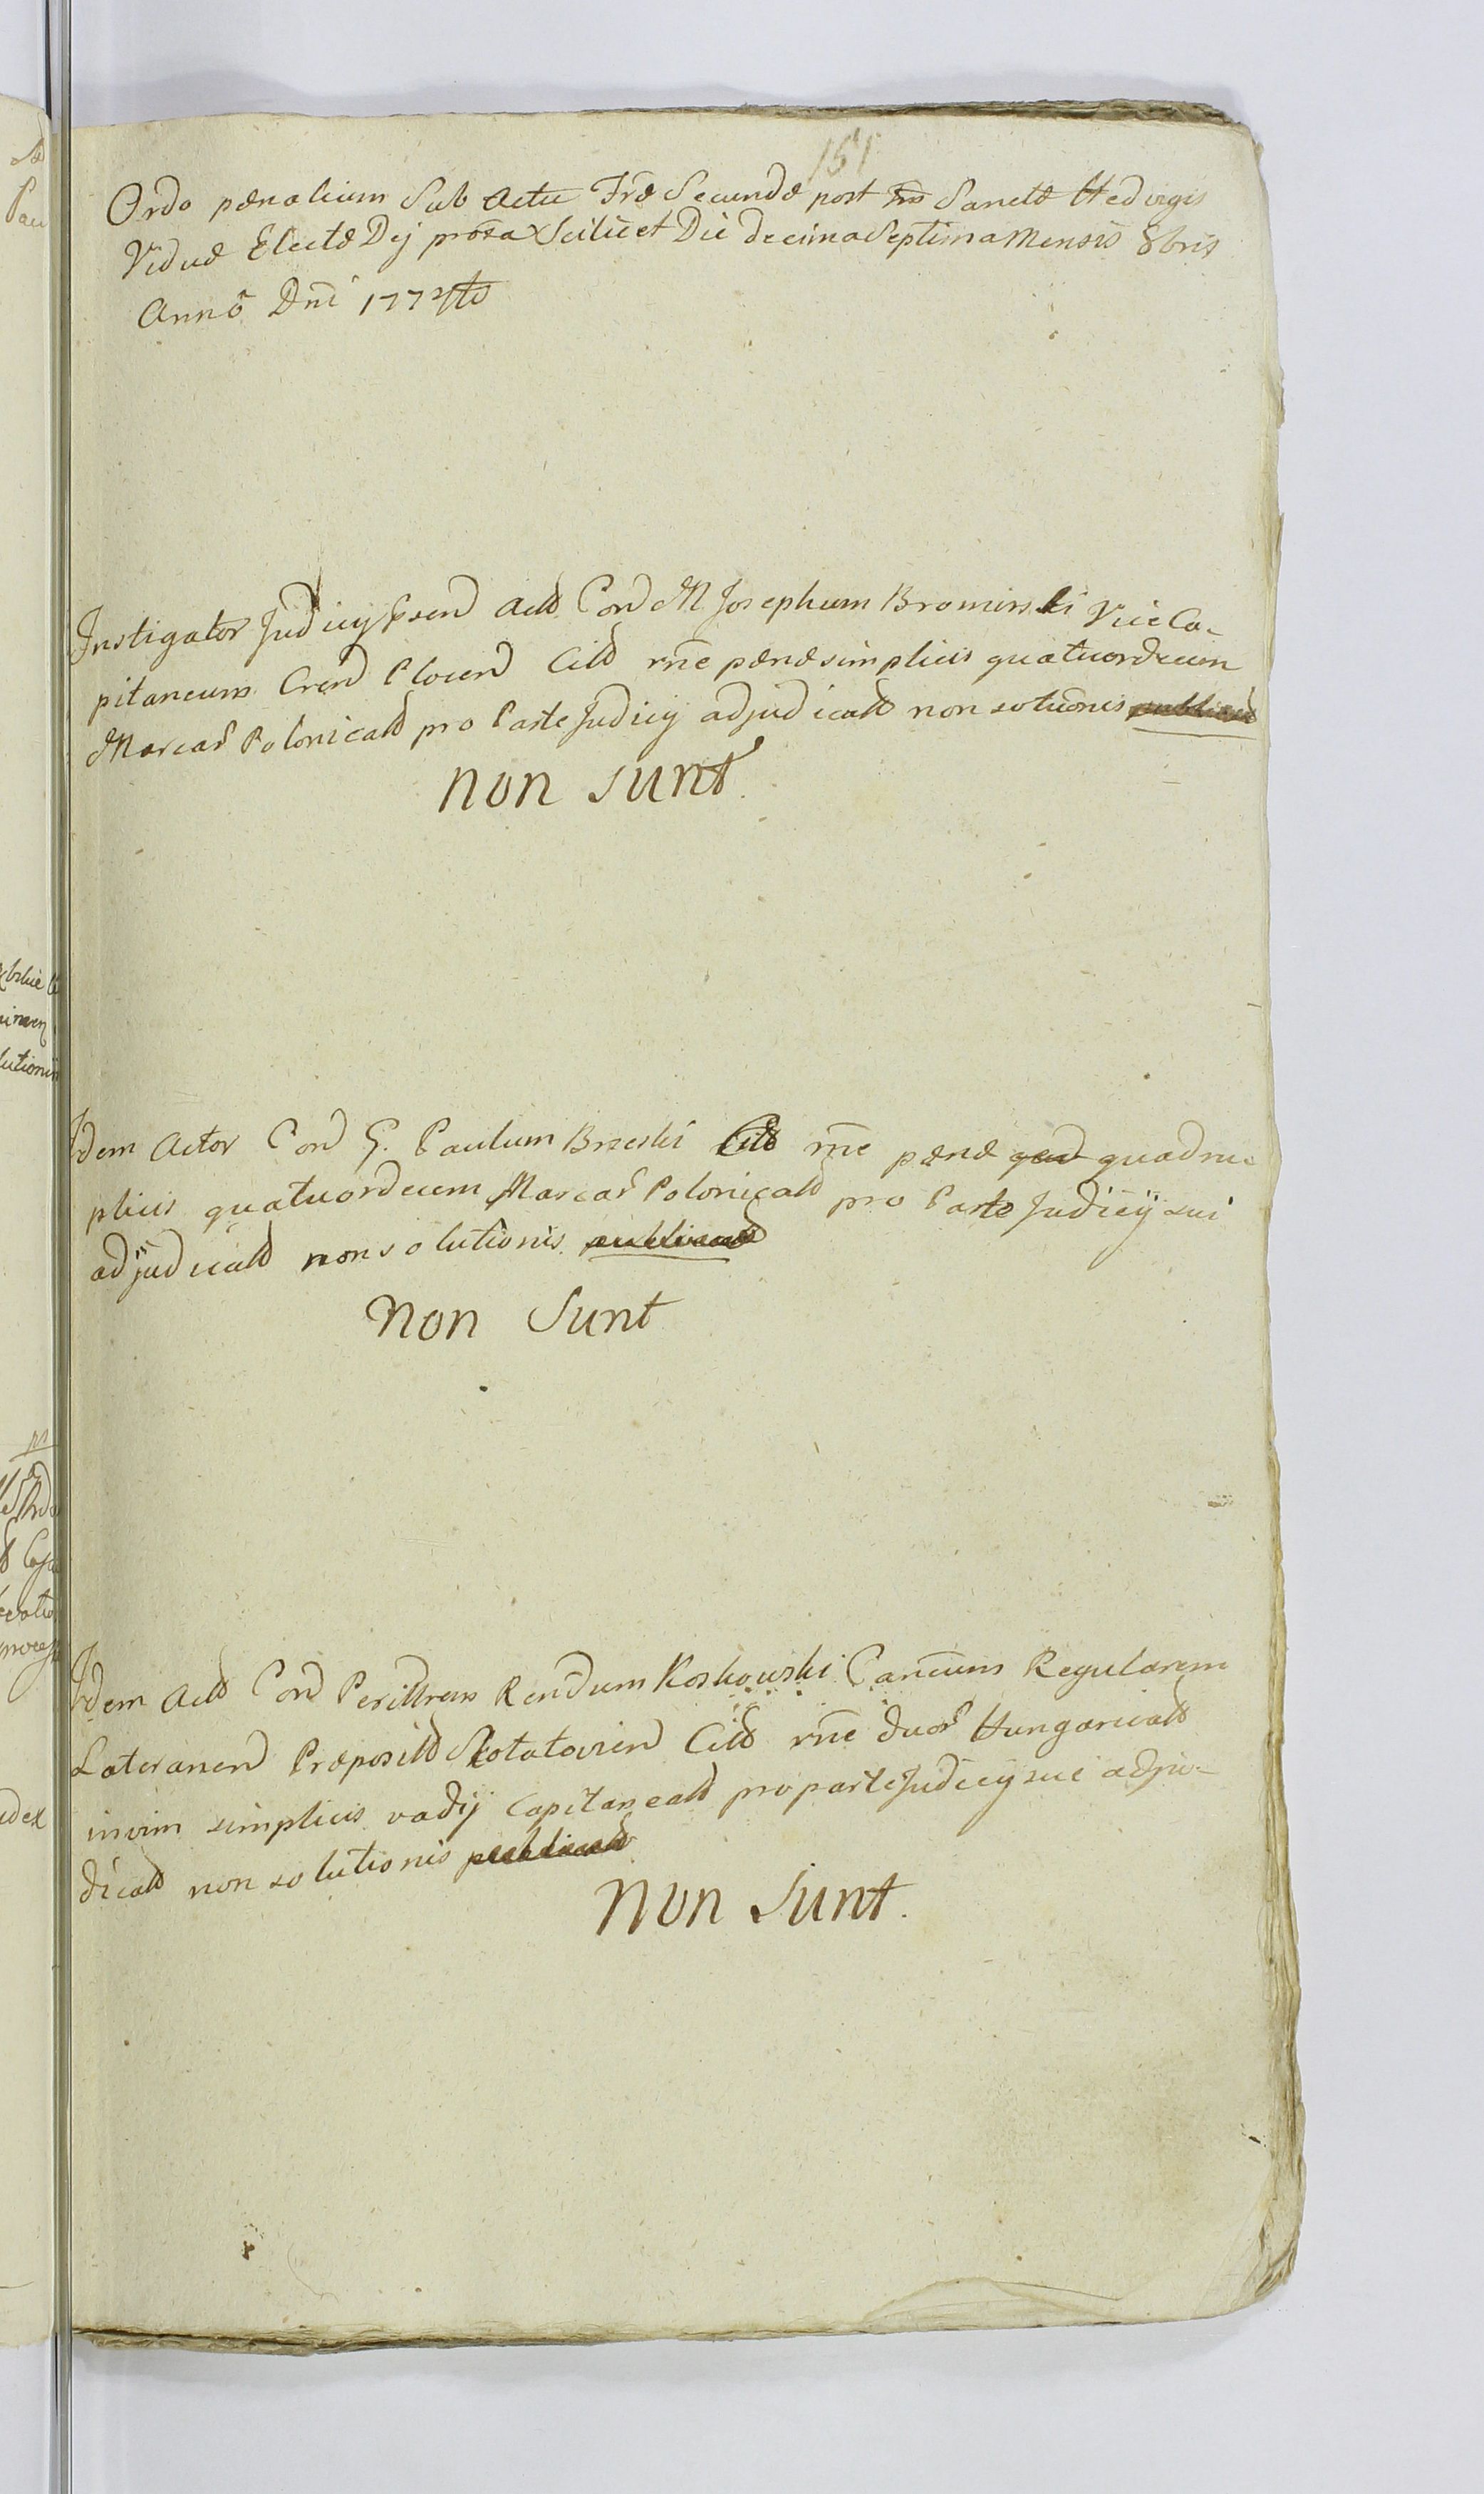 151
Ordo pænalium Sub Actu Friæ Secundæ post Sanctæ Hedvigis
Viduæ Electæ Dej proxa Scilicet Die decima Septima Mensis 8bris
Anno Dni 1774to
Instigator Judicij Psend Actt Cond M Josephum Bromirski ViceCa-
pitaneum Crend Plocend Citt rne pænæ simplicis quatuordecem
Marcar Polonicatt pro Parte Judicij adjudicatt non solutionis publicatt
Non Sunt
Idem Actor Cond G. Paulum Brzeski Citt rne pænæ quad quadru-
plicis quatuordecem Marcar Polonicatt pro Parte Judicij sui
adjudicatt non solutionis publicatt
Non Sunt
Idem Actt Cond Perillrem Rendum Koskowski Cancum Regularem
Lateranend Præpositt Citt rne duor Hungaricatt
invim simplicis vadij Capitaneatt pro parte Judicij sui adju-
dicatt non solutionis publicatt
Non Sunt.
lutionis